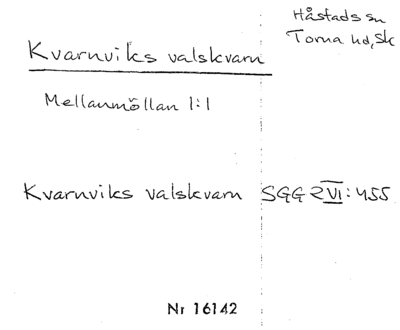 Håstads sn
Torna hd, Sk
Kvarnviks valskvarn
Mellanmöllan 1:1
Kvarnviks valskvarn SGG 2 VI: 455
Nr 16142